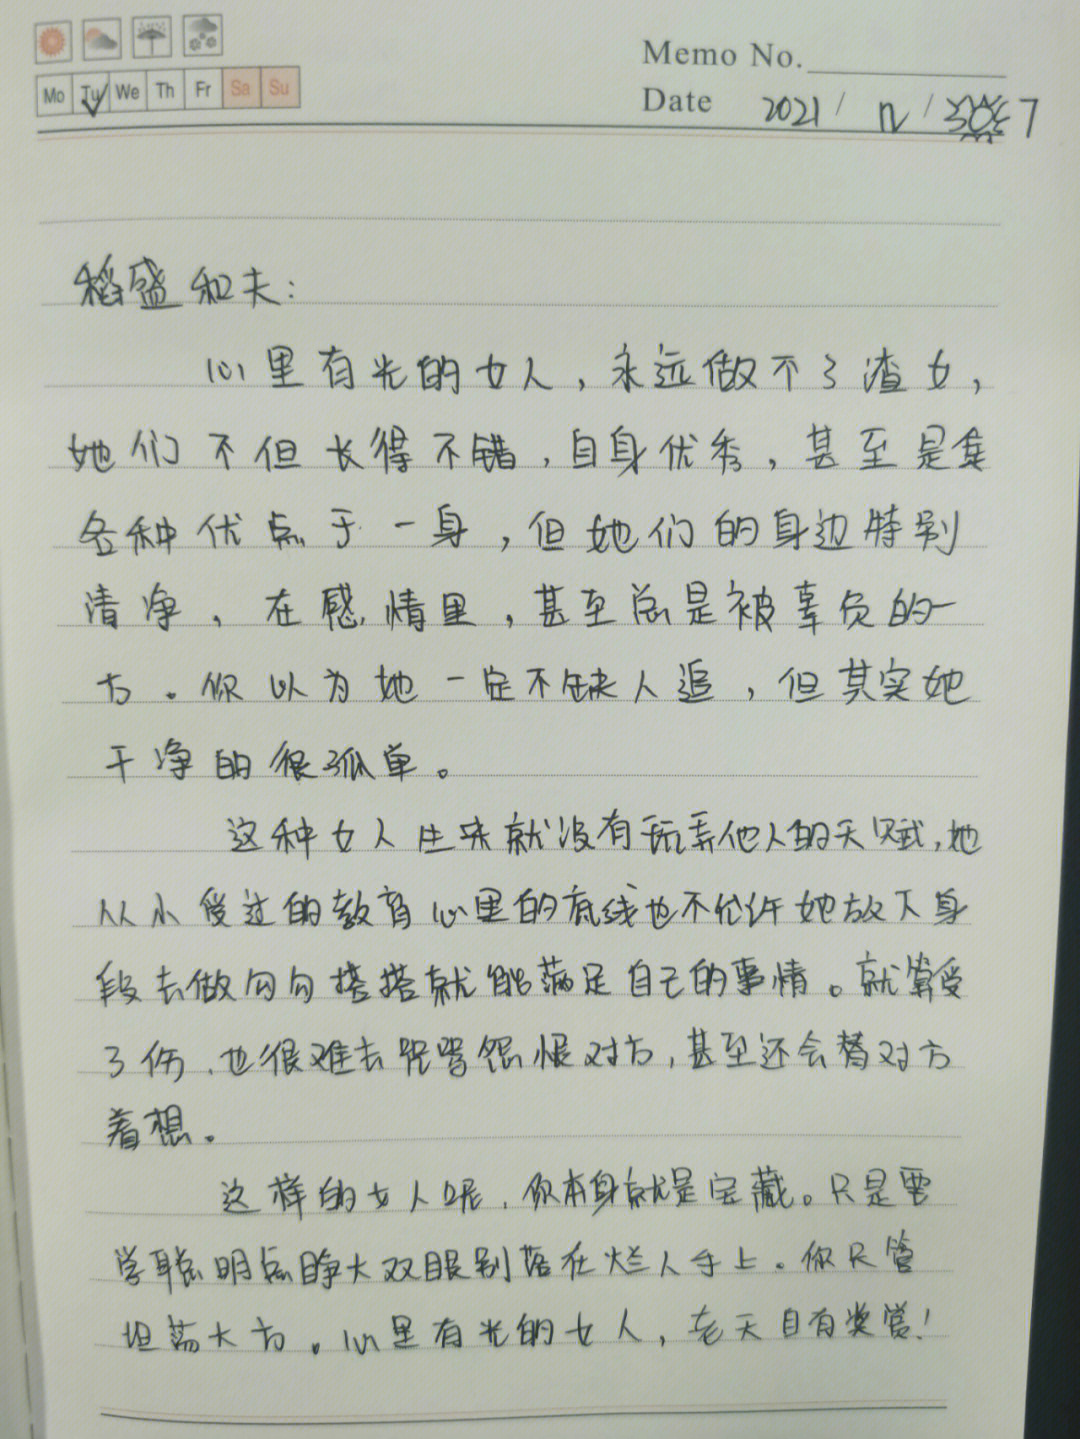 Mo Tu We Th Fr Sa Su
Memo No.
Date 2021/12/7
稻盛和夫:
心里有光的女人,永远做不了渣女,
她们不但长得不错,自身优秀,甚至是集
各种优点于一身,但她们的身边特别
清净,在感情里,甚至总是被辜负的一
方。你以为她一定不缺人追,但其实她
干净的很孤单。
这种女人生来就没有玩弄他人的天赋,她
从小受过的教育心里的底线也不允许她放下身
段去做勾勾搭搭就能满足自己的事情。就算受
了伤、也很难去咒骂怨恨对方,甚至还会替对方
着想。
这样的女人呢,你本身就是宝藏。只是要
学聪明点睁大双眼别落在烂人手上。你只管
坦荡大方。心里有光的女人,老天自有奖赏!